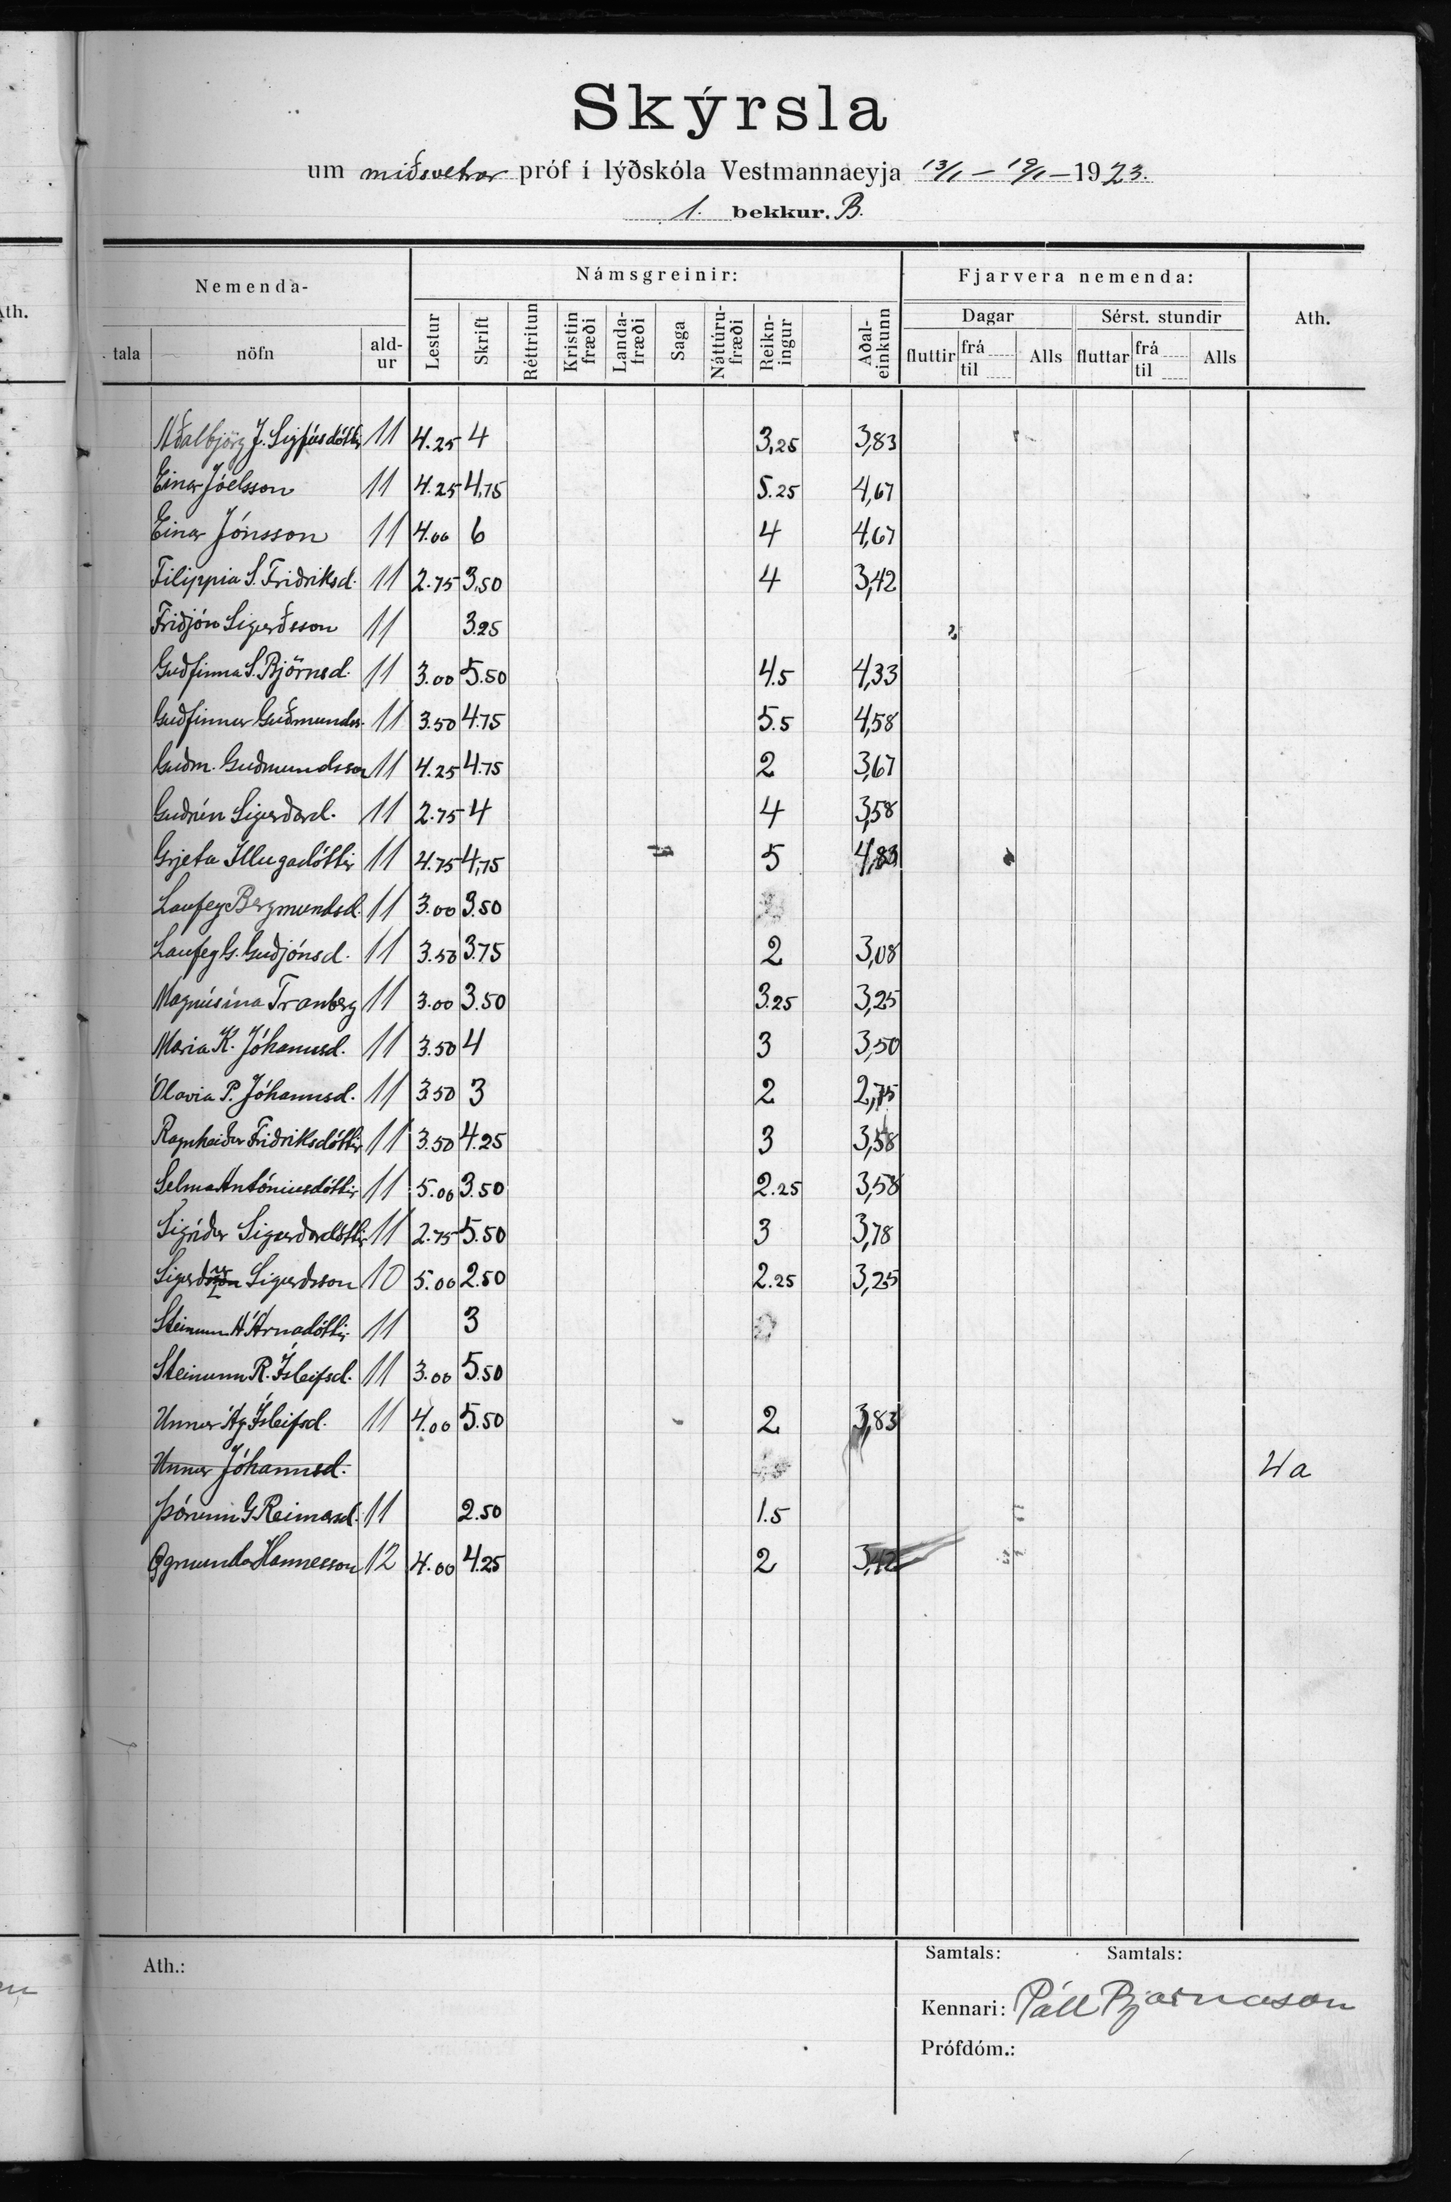 Skýrsla
um miðsvetrar próf í lýðskóla Vestmannaeyja 13/1 – 19/1 – 1923.
1. bekkur. B.
Nemenda-
Námsgreinir:
Fjarvera nemenda:
Ath.
tala nöfn ald-ur Lestur Skrift Réttritun Kristin fræði Landa-fræði Saga Náttúru-fræði Reikn-ingur Aðal-einkunn
Dagar Sérst. stundir
fluttir frá til Alls fluttar frá til Alls
Aðalbjörg J. Sigfúsdóttir 11 4.25 4 3,25 3,83
Einar Jóelsson 11 4.25 4,75 5.25 4,67
Einar Jónsson 11 4.00 6 4 4,67
Filippia S. Friðriksd. 11 2.75 3,50 4 3,42
Friðjón Sigurðsson 11 3.25
Guðfinna S. Björnsd. 11 3.00 5.50 4.5 4,33
Guðfinnur Guðmunds. 11 3.50 4.75 5.5 4,58
Guðm. Guðmundsson 11 4.25 4.75 2 3,67
Guðrún Sigurðard. 11 2.75 4 4 3,58
Grjeta Illugadóttir 11 4.75 4,75 5 4,83
Laufey Bergmundsd. 11 3.00 3.50
Laufey G. Guðjónsd. 11 3.50 3.75 2 3,08
Magnúsína Tranberg 11 3.00 3.50 3.25 3,25
Maria K. Jóhannsd. 11 3.50 4 3 3,50
Ólavia P. Jóhannsd. 11 3.50 3 2 2,75
Ragnheiður Friðriksdóttir 11 3.50 4.25 3 3,58
Selma Antóniusdóttir 11 5.00 3.50 2.25 3,58
Sigríður Sigurðardóttir 11 2.75 5.50 3 3,78
Sigurður Sigurðsson 10 5.00 2.50 2.25 3,25
Steinunn Á Árnadóttir 11 3
Steinunn R. Ísleifsd. 11 3.00 5.50
Unnur Ág Ísleifsd. 11 4.00 5.50 2 3,83
Unnur Jóhannsd. 4 a
Þórunn G Reimarsd. 11 2.50 1.5
Ögmundur Hannesson 12 4.00 4.25 2 3,42
Ath.:
Samtals: Samtals:
Kennari: Páll Bjarnason
Prófdóm.: